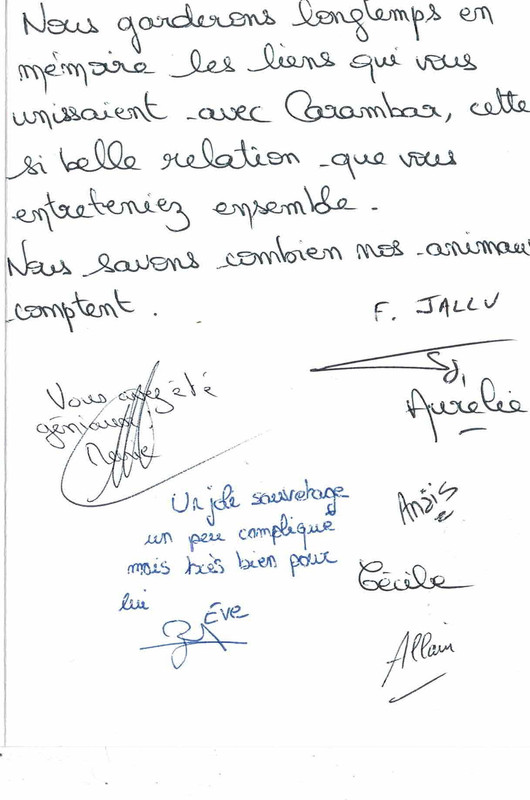 Nous garderons longtemps en
mémoire les liens qui vous
unissaient avec Carambar, cette
si belle relation que vous
entreteniez ensemble.
Nous savons combien nos animaux
comptent.
F. JALLU
Aurélie
Vous avez été
géniaux !
Anaïs
Un joli sauvetage
un peu compliqué
mais très bien pour
lui
Eve
Cécile
Allain